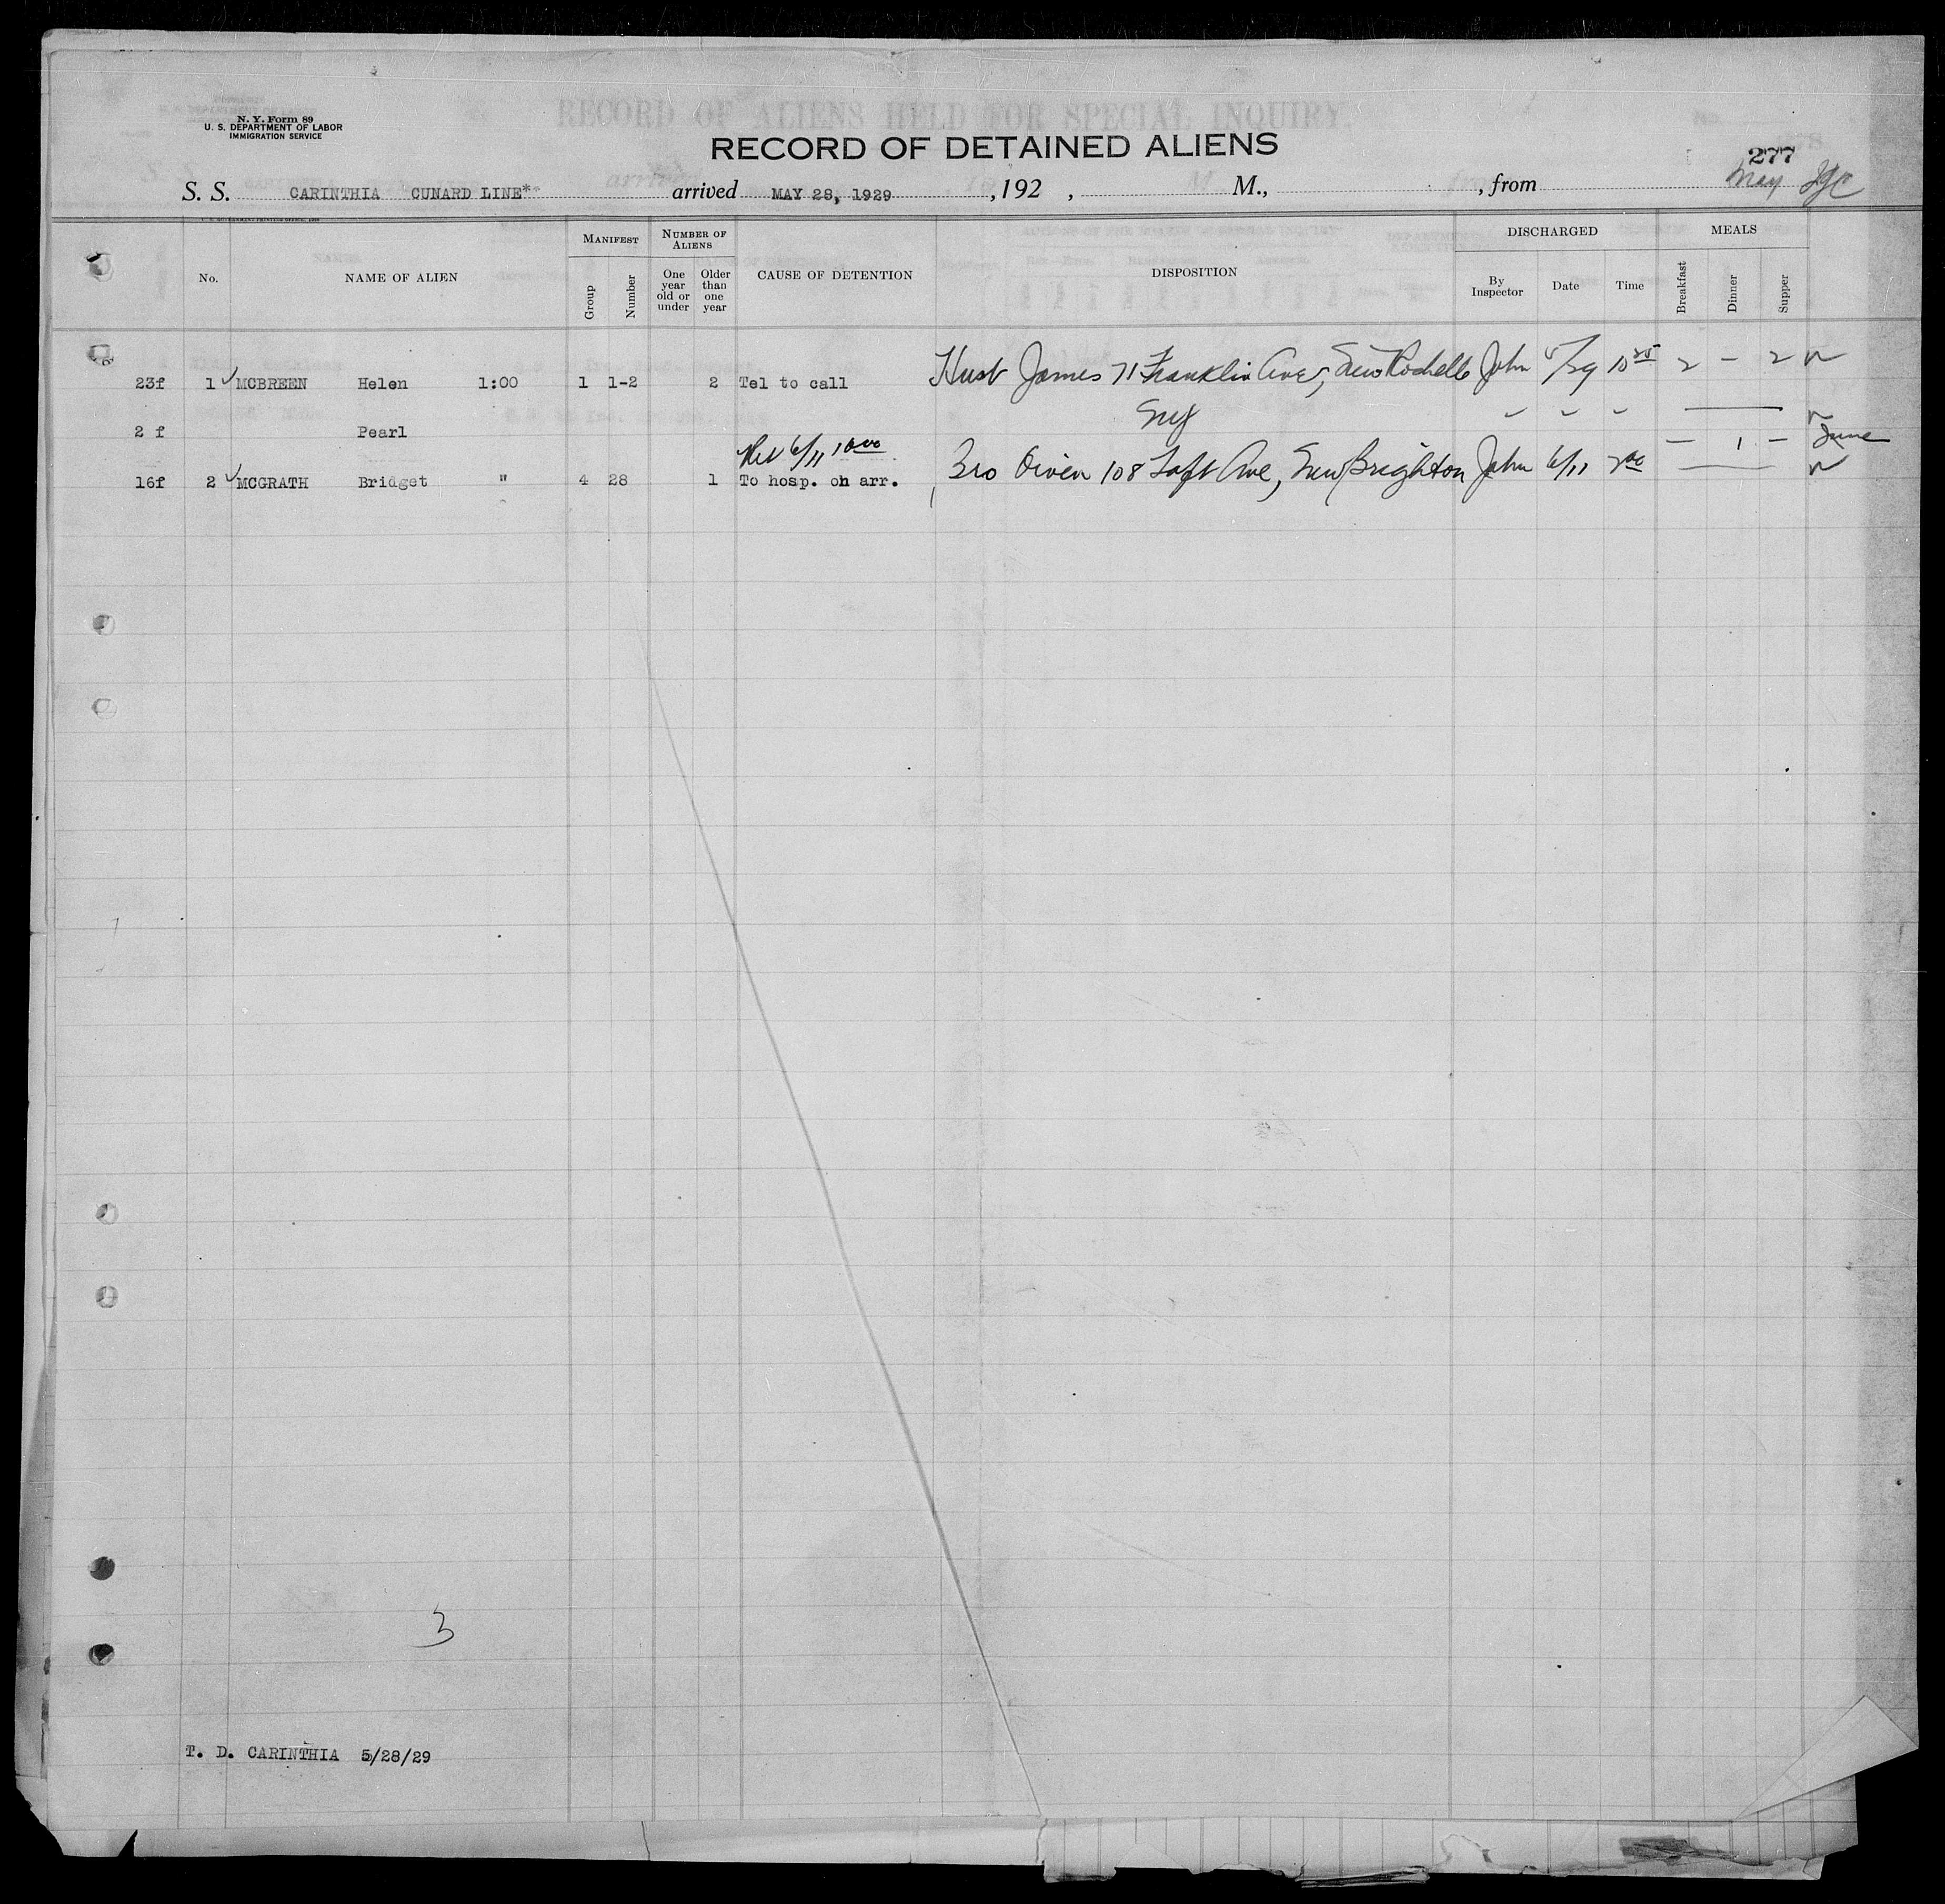 N. Y. Form 89
U. S. DEPARTMENT OF LABOR
IMMIGRATION SERVICE
RECORD OF ALIENS HELD FOR SPECIAL INQUIRY.
RECORD OF DETAINED ALIENS
277
S. S. CARINTHIA CUNARD LINE** arrived MAY 28, 1929, 192 , M., , from May
No. NAME OF ALIEN MANIFEST Group Number NUMBER OF ALIENS One year old or under Older than one year CAUSE OF DETENTION DISPOSITION DISCHARGED By Inspector Date Time MEALS Breakfast Dinner Supper
23f 1 ✓ MCBREEN Helen 1:00 1 1-2 2 Tel to call Husb James 71 Franklin Ave, New Rochelle John 5/29 10 25 2 — 2
2 f Pearl NY
6/11 10 00 — 1 — June
16f 2 ✓ MCGRATH Bridget " 4 28 1 To hosp. on arr. Bro Owen 108 Taft Ave, New Brighton John 6/11 2 00
3
T. D. CARINTHIA 5/28/29